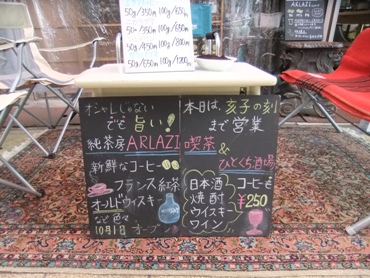 50g/350円 100g/650円
50g/350円 100g/650円
50g/450円 100g/800円
50g/650円 100g/1200円
ARLAZI
オシャレじゃない
でも 旨い!
純茶房 ARLAZI
新鮮なコーヒー
フランス紅茶
オールドウィスキー
など 色々
10月1日 オープン
本日は、亥子の刻
まで 営業
喫茶&
ひとくち酒場
日本酒
焼酎
ウイスキー
ワイン
コーヒーも
¥250